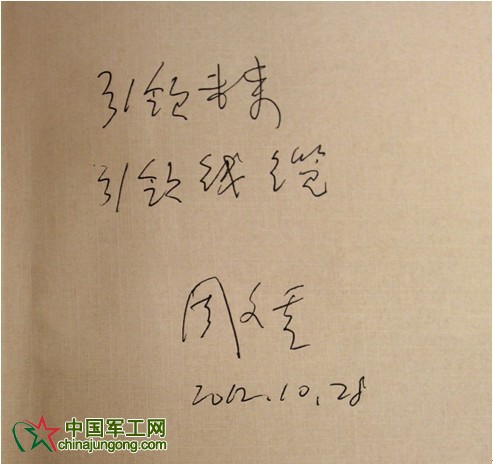 引领未来
引领线缆
周文
2012.10.28
中国军工网
chinajungong.com